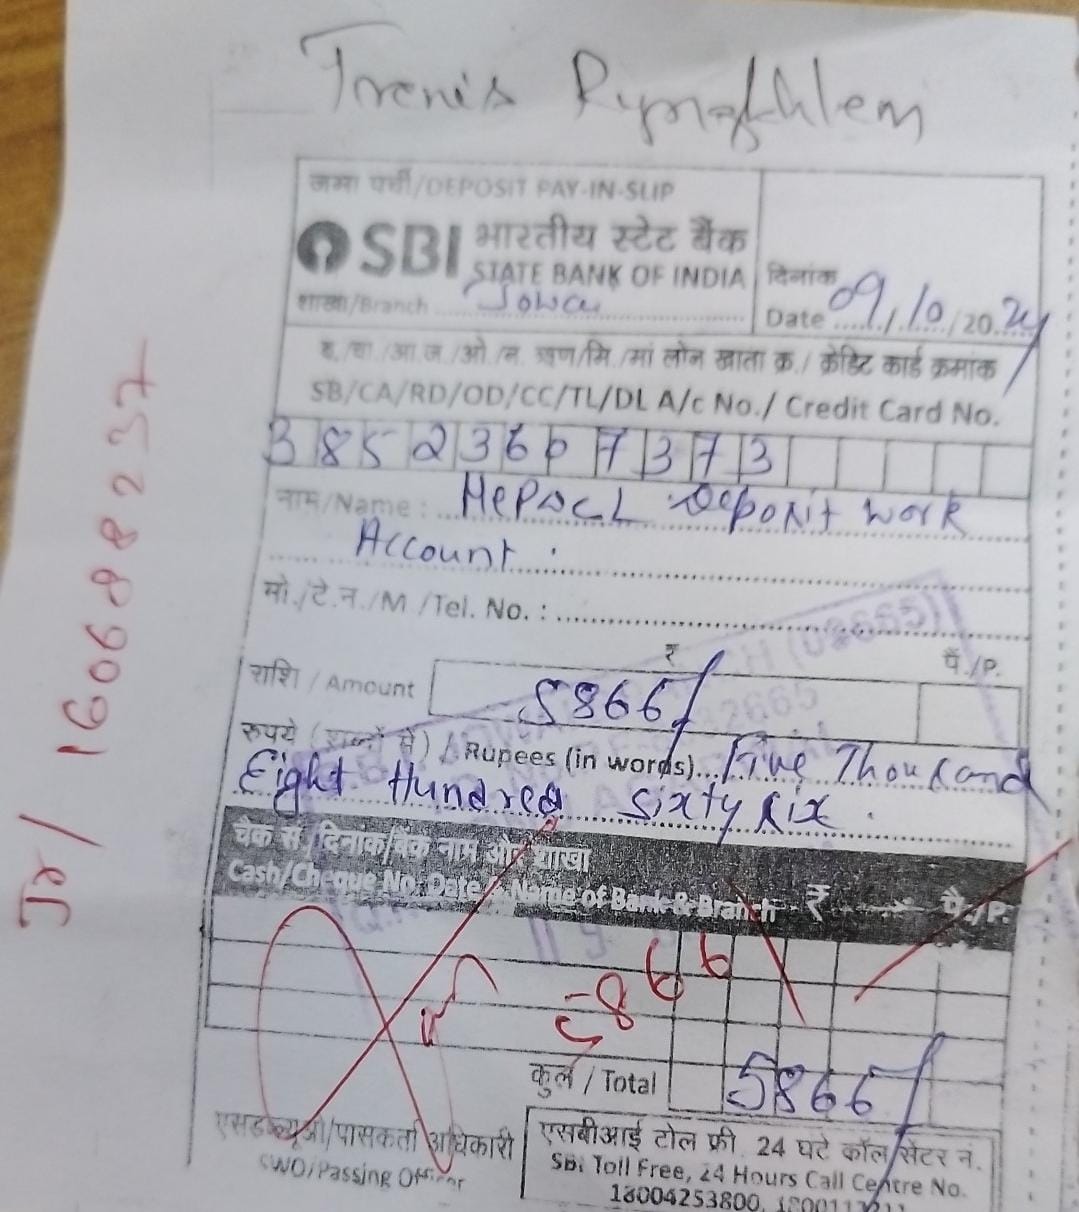 जमा पर्ची/DEPOSIT PAY-IN-SLIP
SBI भारतीय स्टेट बैंक
STATE BANK OF INDIA
शाखा/Branch Jowai
दिनांक
Date 09/10/2024
SB/CA/RD/OD/CC/TL/DL A/c No./ Credit Card No.
38523667373
नाम/Name : MePDCL Deposit work
Account :
मो./टे.न./M /Tel. No. :
₹ पै./P.
राशि / Amount 5866/
रुपये (शब्दों में) / Rupees (in words)... Five Thousand
Eight Hundred sixty six .
चेक सं./दिनांक/बैंक नाम और शाखा
Cash/Cheque No. Date / Name of Bank & Branch ₹ पै./P.
5866
कुल / Total 5866/
एसडब्ल्यूओ/पासकर्ता अधिकारी
SWO/Passing Officer
एसबीआई टोल फ्री, 24 घंटे कॉल सेंटर नं.
SBI Toll Free, 24 Hours Call Centre No.
18004253800,
Jr/ 160698237